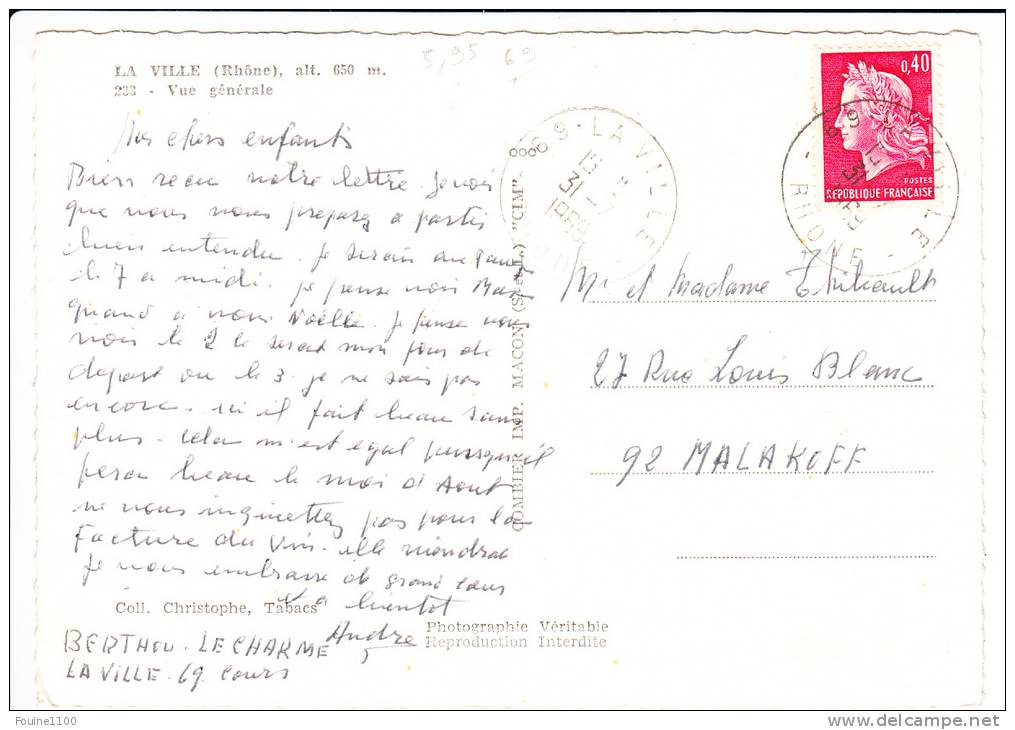 LA VILLE (Rhône), alt. 650 m.
233 - Vue générale
5,95 69
0,40
POSTES
RÉPUBLIQUE FRANÇAISE
69 - LA VILLE
15 H
31 - 7
1969
RHONE
Mes chers enfants
Bien recu votre lettre. Je vois
que vous vous preparez a partir
bien entendu. Je serais au
le 7 a midi. Je pense voir
quand a vous Noëlle. Je pense vous
voir le 2 le serait mon jour de
depart ou le 3. Je ne sais pas
encore. ici il fait beau sans
plus. Cela m'est egal puisqu'il
fera beau le moi d'Aout
ne vous inquiettez pas pour la
Facture du Vin. elle viendra
Je vous embrasse de grand cœur
a bientot
André
Coll. Christophe, Tabacs
BERTHOU. LE CHARME
LA VILLE. 69. Cours
COMBIER IMP. MACON (S.-et-L.) "CIM"
Mr et Madame Thibault
27 Rue Louis Blanc
92 MALAKOFF
Photographie Véritable
Reproduction Interdite
Fouine1100
delcampe.net